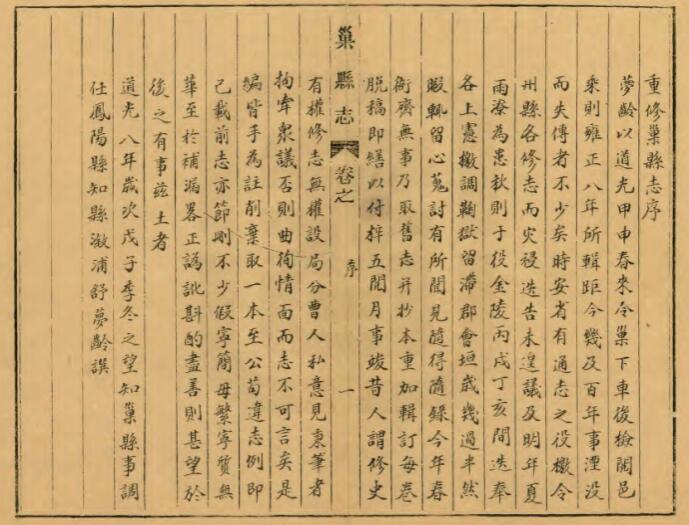 重修巢縣志序
夢齡以道光甲申春來令巢下車後檢閱邑
乘則雍正八年所輯距今幾及百年事湮没
而失傳者不少矣時安省有通志之役檄令
州縣各修志而灾祲迭告未遑議及明年夏
雨潦為患秋則于役金陵丙戌丁亥間迭奉
各上憲檄調鞠獄留滯郡會垣歲幾過半然
暇輒留心蒐討有所聞見隨得隨錄今年春
衙齋無事乃取舊志并抄本重加輯訂每卷
脱稿即繕以付梓五閱月事竣昔人謂修史
巢縣志 卷之 序 一
有權修志無權設局分曹人私意見秉筆者
拘牽衆議否則曲徇情面而志不可言矣是
編皆手為註削棄取一本至公苟違志例即
已載前志亦節刪不少假寧簡毋繁寧質無
華至於補漏畧正譌訛斟酌盡善則甚望於
後之有事兹土者
道光八年歲次戊子季冬之望知巢縣事調
任鳳陽縣知縣漵浦舒夢齡譔